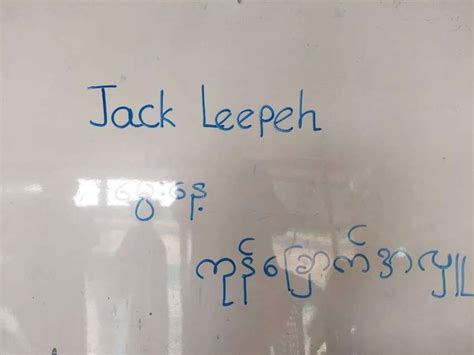 Jack Leepeh
မွေးနေ့
ကုန်ခြောက်အလှူ